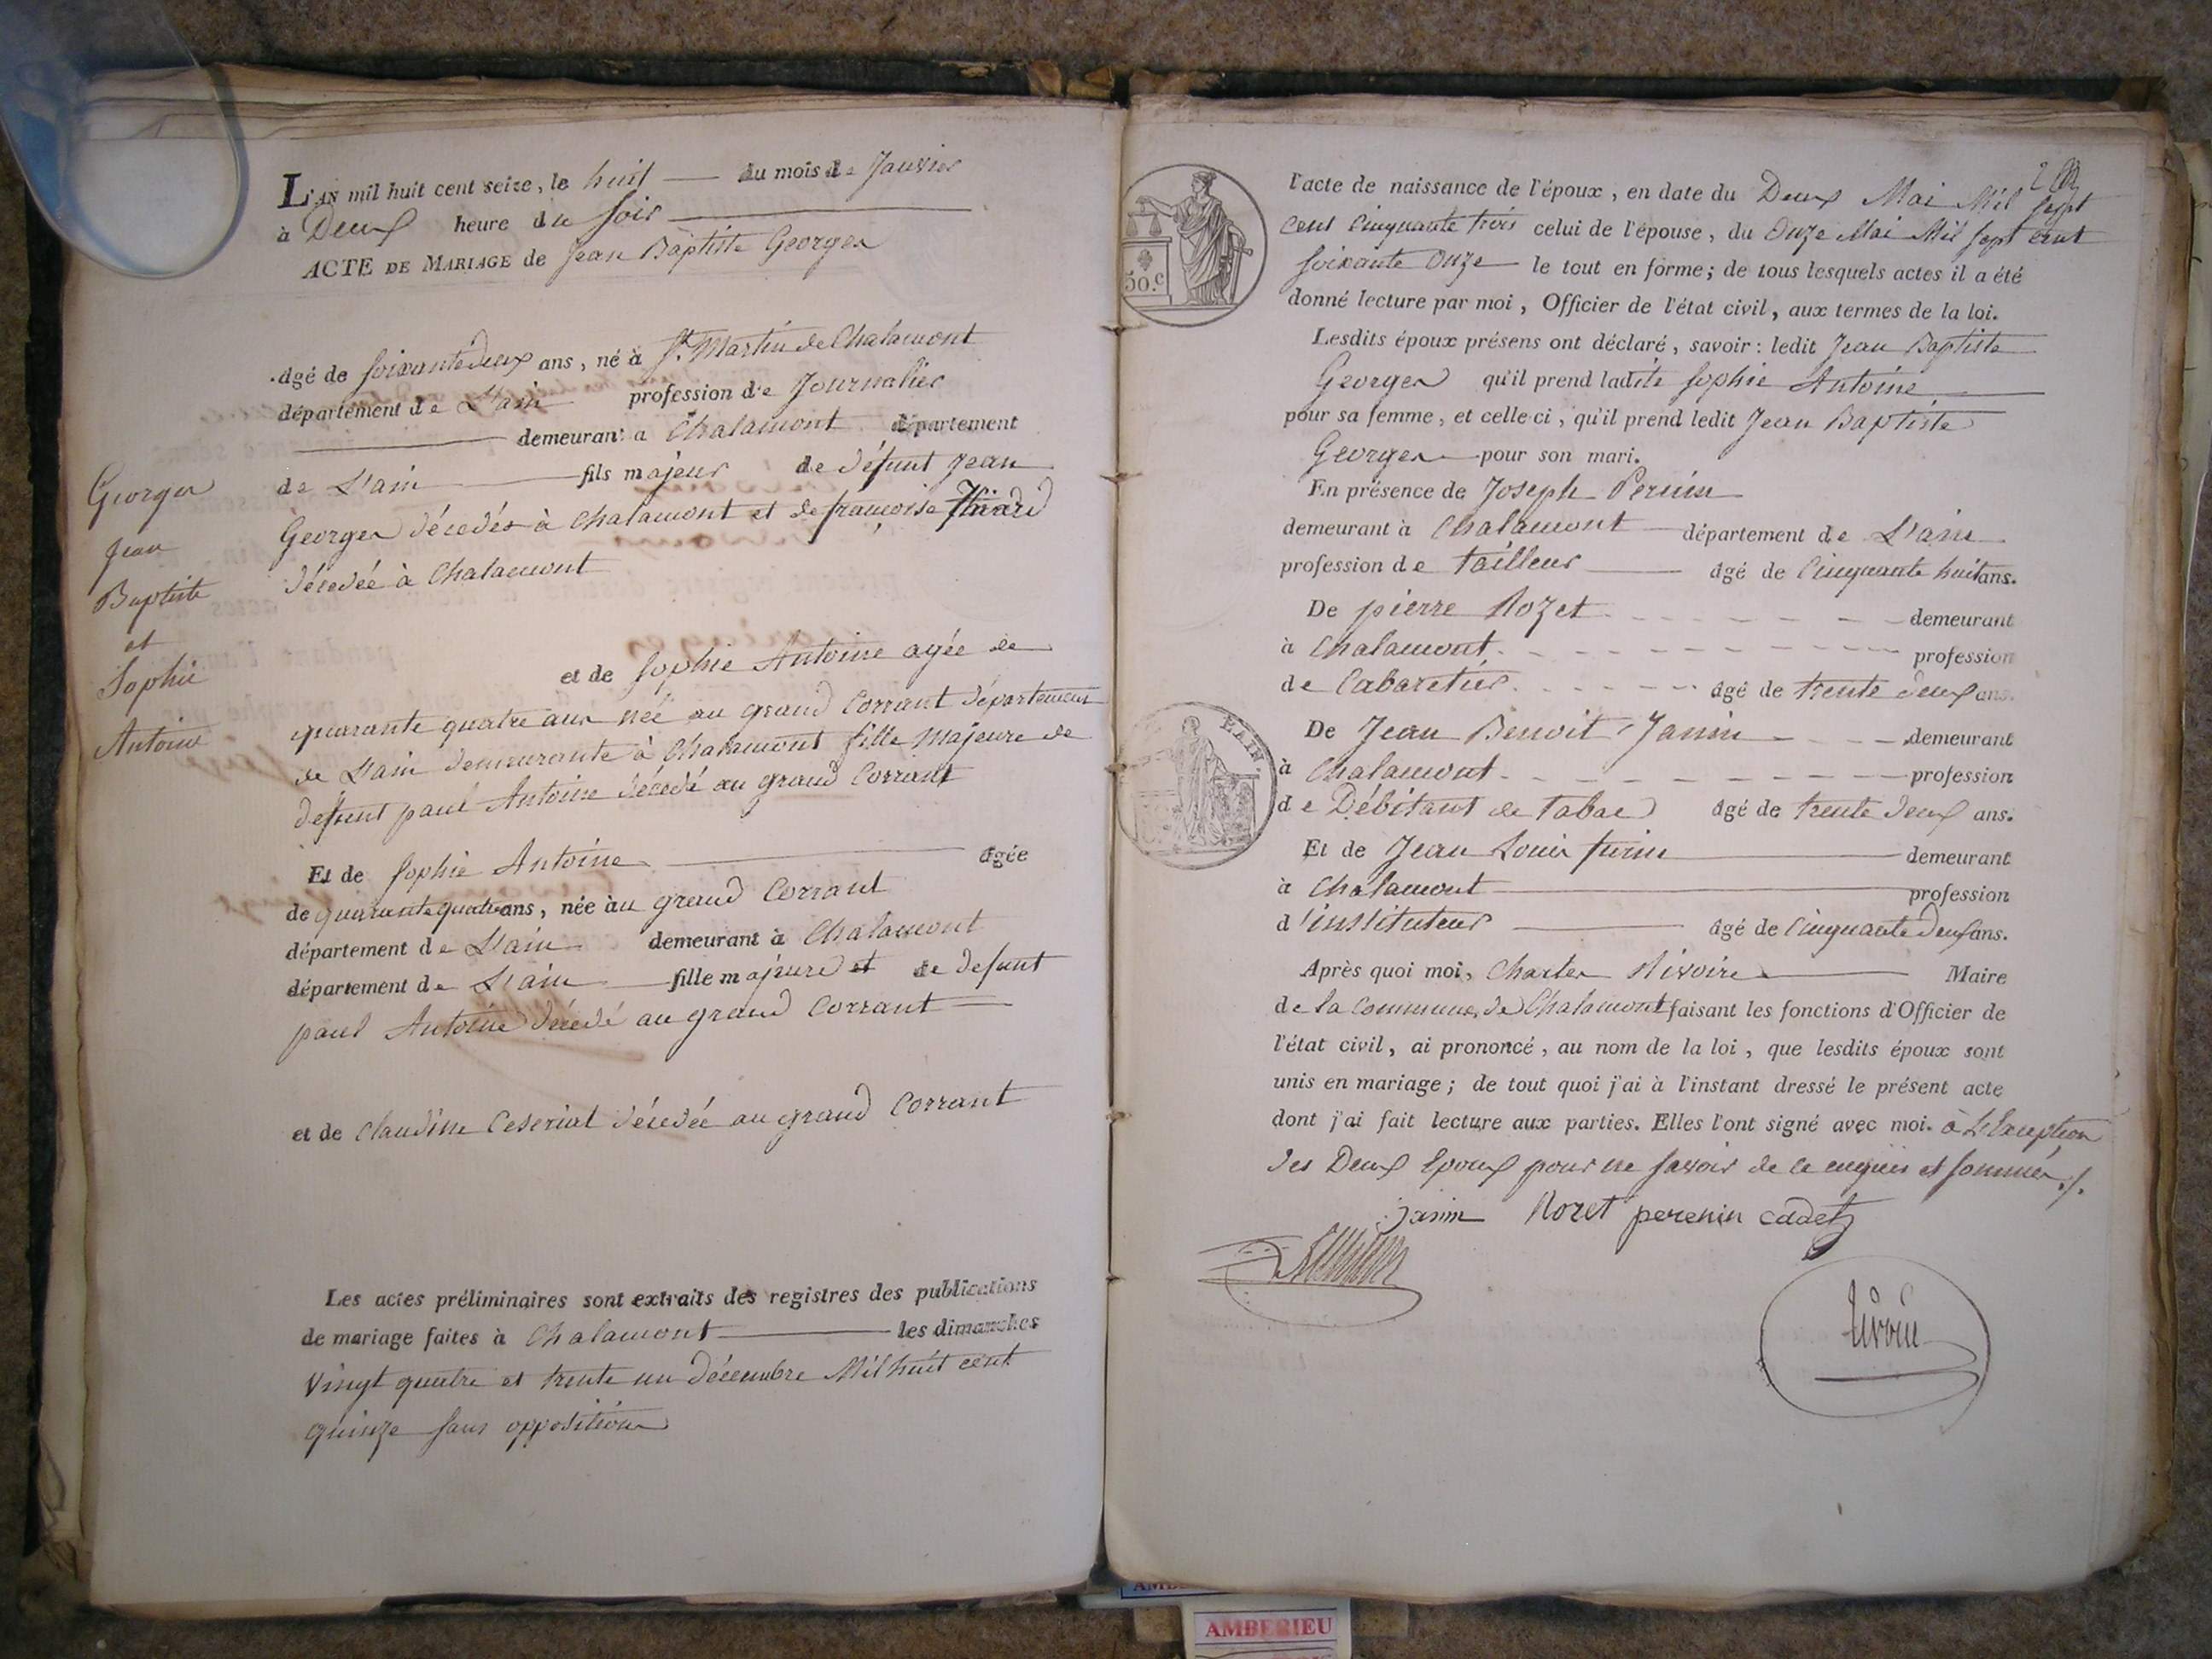 L'AN mil huit cent seize, le huit du mois de Janvier
à Deux heure du soir
ACTE DE MARIAGE de Jean Baptiste Georges
âgé de soixante deux ans, né à St. Martin de Chalamont
département de L'ain profession de Journalier
demeurant a Chalamont département
de L'ain fils majeur de défunt Jean
Georges décédés à Chalamont et de françoise
décedée à Chalamont
Georges
Jean
Baptiste
et
Sophie
Antoine
et de Sophie Antoine agée de
quarante quatre ans née au grand Corrant département
de L'ain demeurante à Chalamont fille majeure de
defunt paul Antoine décedé au grand Corrant
Et de Sophie Antoine agée
de quarante quatre ans, née au grand Corrant
département de L'ain demeurant à Chalamont
département de L'ain fille majeure et de defunt
paul Antoine décedé au grand Corrant
et de Claudine Ceseriat décedée au grand Corrant
Les actes préliminaires sont extraits des registres des publications
de mariage faites à Chalamont les dimanches
Vingt quatre et trente un décembre Mil huit cent
quinze sans opposition
50.c
l'acte de naissance de l'époux, en date du Deux Mai Mil sept
cent cinquante trois celui de l'épouse, du Onze Mai Mil sept cent
soixante Onze le tout en forme; de tous lesquels actes il a été
donné lecture par moi, Officier de l'état civil, aux termes de la loi.
Lesdits époux présens ont déclaré, savoir: ledit Jean Baptiste
Georges qu'il prend ladite Sophie Antoine
pour sa femme, et celle ci, qu'il prend ledit Jean Baptiste
Georges pour son mari.
En présence de Joseph Perenin
demeurant à Chalamont département de L'ain
profession de Tailleur âgé de Cinquante huit ans.
De pierre Rozet demeurant
à Chalamont profession
de Cabaretier âgé de trente deux ans.
AIN.
De Jean Benoit Janin demeurant
à Chalamont profession
de Débitant de tabac âgé de trente deux ans.
Et de Jean Louis demeurant
à Chalamont profession
d'instituteur âgé de Cinquante deux ans.
Après quoi moi, Charles Rivoire Maire
de la Commune de Chalamont faisant les fonctions d'Officier de
l'état civil, ai prononcé, au nom de la loi, que lesdits époux sont
unis en mariage; de tout quoi j'ai à l'instant dressé le présent acte
dont j'ai fait lecture aux parties. Elles l'ont signé avec moi. à L'Exception
des Deux Epoux pour ne savoir de ce enquis et sommés ./.
Janin Rozet perenin cadet
Rivoire
AMBERIEU